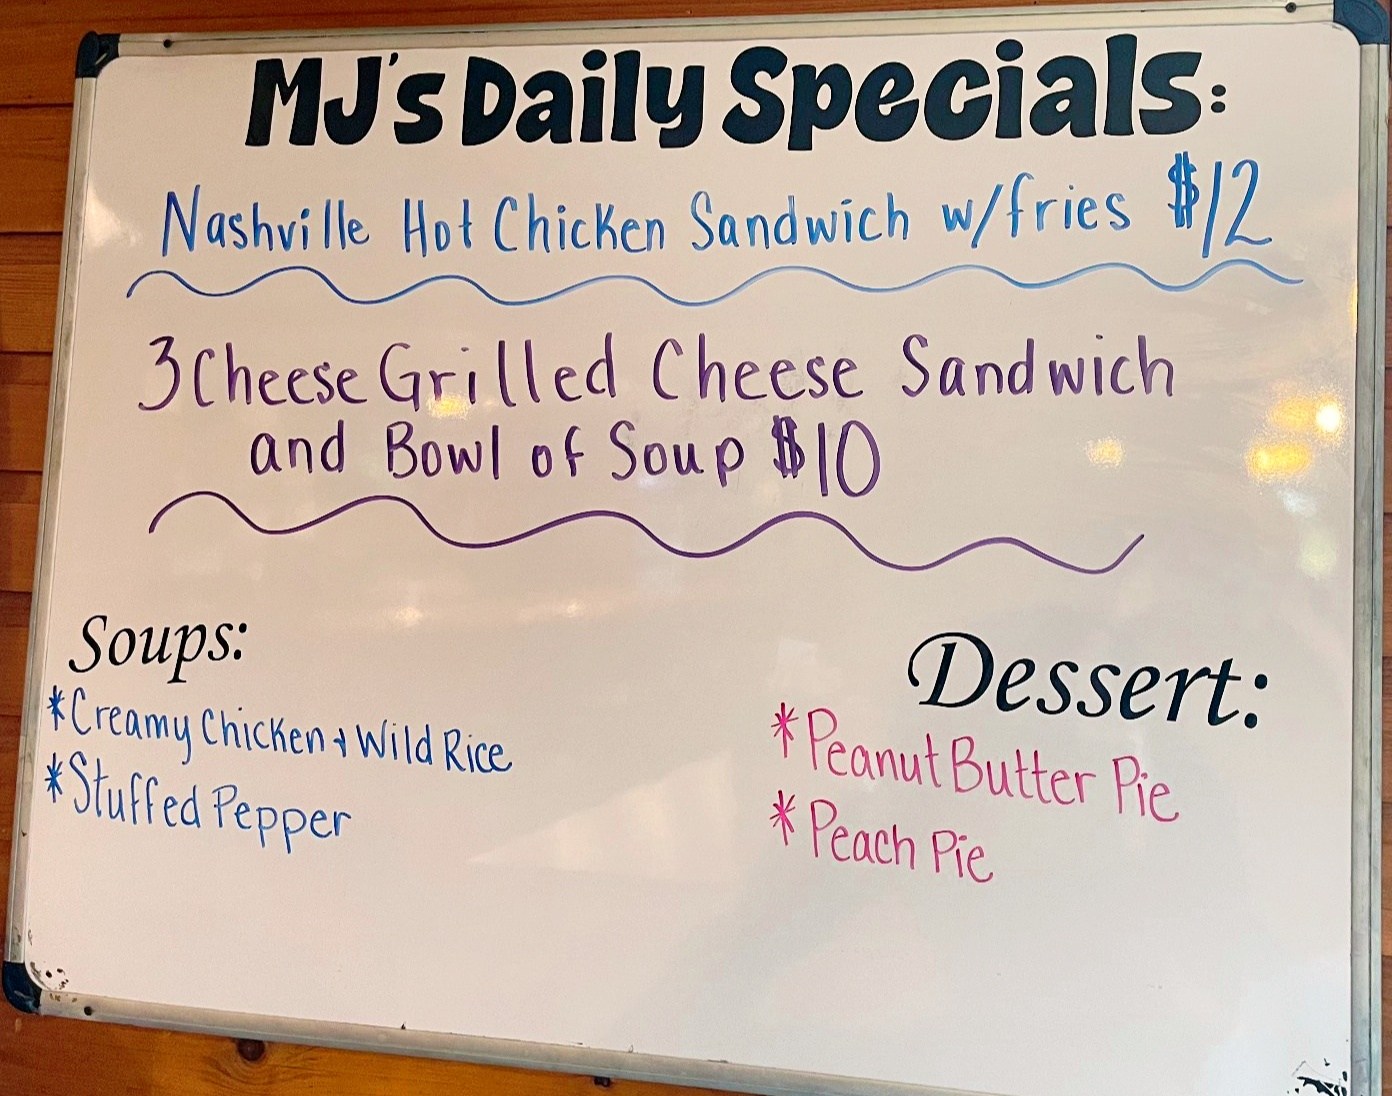 MJ's Daily Specials:
Nashville Hot Chicken Sandwich w/fries $12
3 Cheese Grilled Cheese Sandwich
and Bowl of Soup $10
Soups:
*Creamy Chicken + Wild Rice
*Stuffed Pepper
Dessert:
*Peanut Butter Pie
*Peach Pie